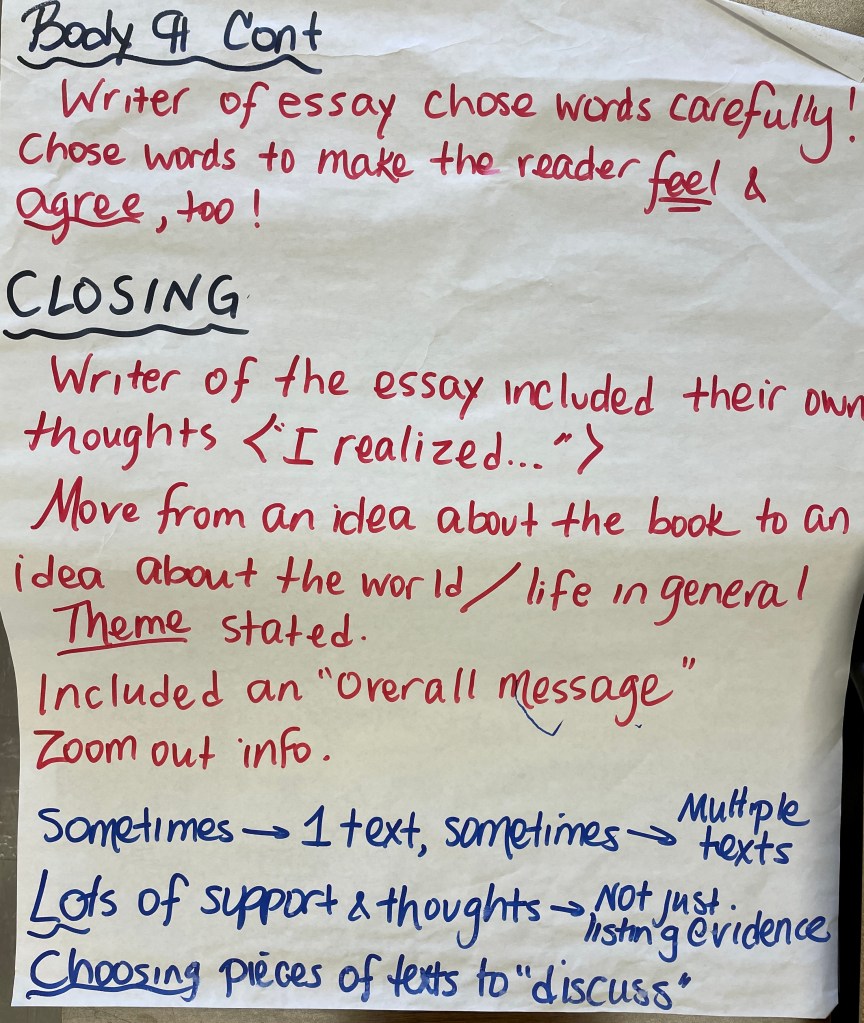 Body ¶ Cont
Writer of essay chose words carefully!
Chose words to make the reader feel &
agree, too!
CLOSING
Writer of the essay included their own
thoughts <"I realized...">
Move from an idea about the book to an
idea about the world/life in general
Theme stated.
Included an "Overall message"
Zoom out info.
Sometimes → 1 text, sometimes → Multiple
texts
Lots of support & thoughts → NOT just
listing evidence
Choosing pieces of texts to "discuss"